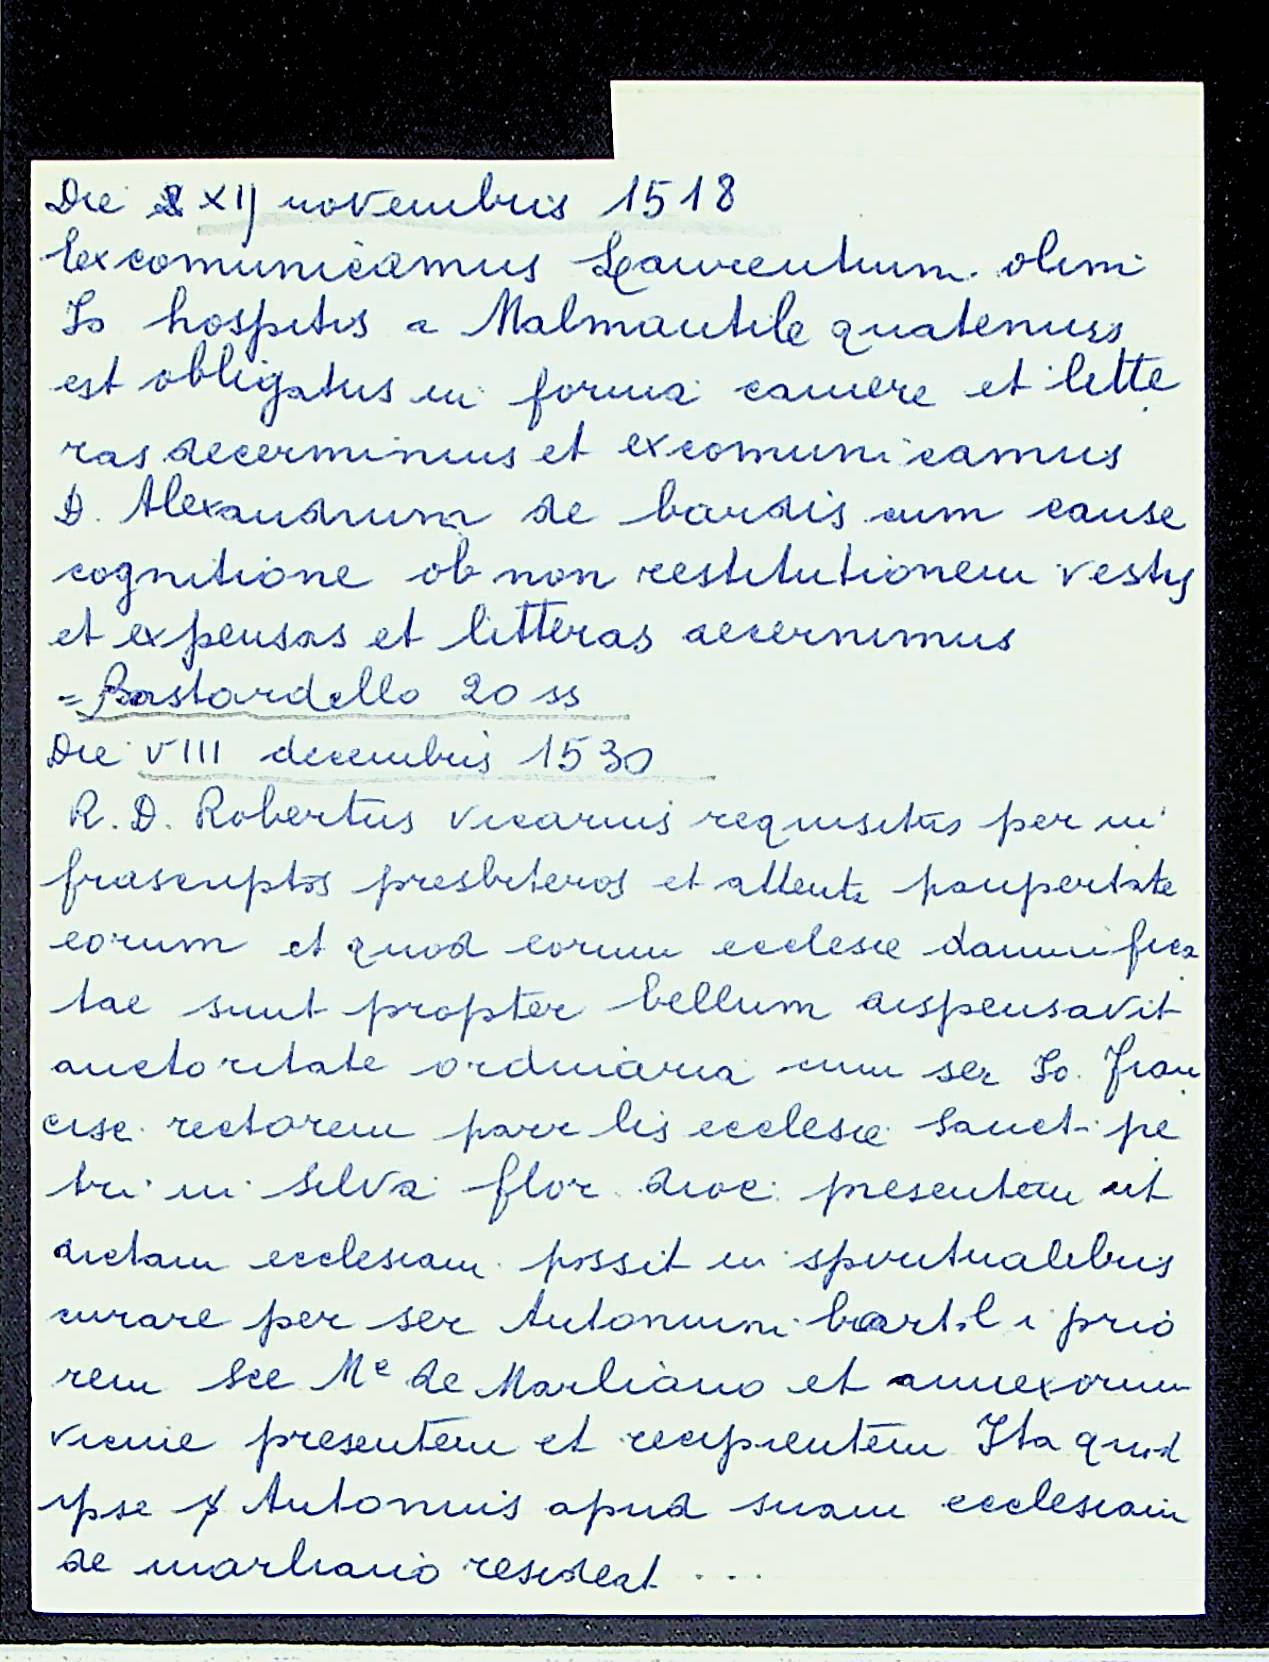 Die XIJ novembris 1518
Excomunicamus Laurentium olim
Jo hospitis a Malmantile quatenus
est obligatus in forma camere et litte
ras decerminus et excomunicamus
D. Alexandrum de bardis cum cause
cognitione ob non restitutionem vestis
et expensas et litteras decernimus
= Bastardello 20 ss
Die VIII decembris 1530
R. D. Robertus vicarius requisitus per in
frascriptos presbiteros et attenta paupertate
eorum et quod eorum ecclesie damnifica
tae sunt propter bellum dispensavit
auctoritate ordinaria cum ser Jo. Fran
cisc. rectorem parr lis ecclesie Sancti pe
tri in Silva flor. dioc. presentem ut
dictam ecclesiam possit in spiritualibus
curare per ser Antonium bartoli prio
rem Sce Me de Marliano et annexorum
vicinie presentem et recipientem Ita quod
ipse Antonius apud suam ecclesiam
de marliano resideat ...